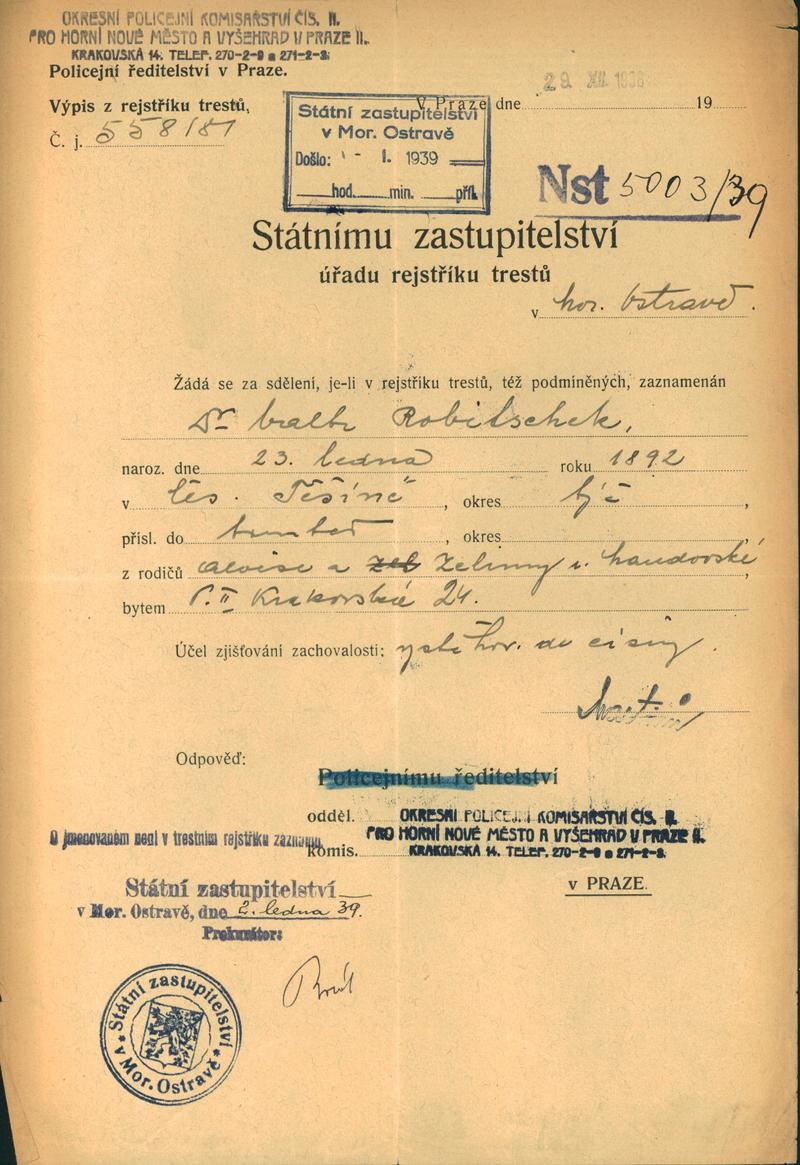 OKRESNÍ POLICEJNÍ KOMISAŘSTVÍ ČÍS. II.
PRO HORNÍ NOVÉ MĚSTO A VYŠEHRAD V PRAZE II.
KRAKOVSKÁ 14. TELEF. 270-2-8 a 271-2-8.
Policejní ředitelství v Praze.
Výpis z rejstříku trestů,
Č. j. 558/181
V Praze dne 29. XII. 1938 19
Státní zastupitelství
v Mor. Ostravě
Došlo: - I. 1939
hod. min. příl.
Nst 5003/39
Státnímu zastupitelství
úřadu rejstříku trestů
v Mor. Ostravě.
Žádá se za sdělení, je-li v rejstříku trestů, též podmíněných, zaznamenán
Dr Robitschek,
naroz. dne 23. ledna roku 1892
v Čes. Těšíně, okres
přísl. do , okres ,
z rodičů Aloise a Zelinny
bytem P. II Krakovská 24.
Účel zjišťování zachovalosti: vystěhov. do ciziny.
Odpověď:
Policejnímu ředitelství
odděl. OKRESNÍ POLICEJNÍ KOMISAŘSTVÍ ČÍS. II.
O jmenovaném není v trestním rejstříku záznamu.
komis. PRO HORNÍ NOVÉ MĚSTO A VYŠEHRAD V PRAZE II.
KRAKOVSKÁ 14. TELEF. 270-2-8 a 271-2-8.
v PRAZE.
Státní zastupitelství
v Mor. Ostravě, dne 2. ledna 39.
Prokurátor:
Státní zastupitelství
* v Mor. Ostravě *